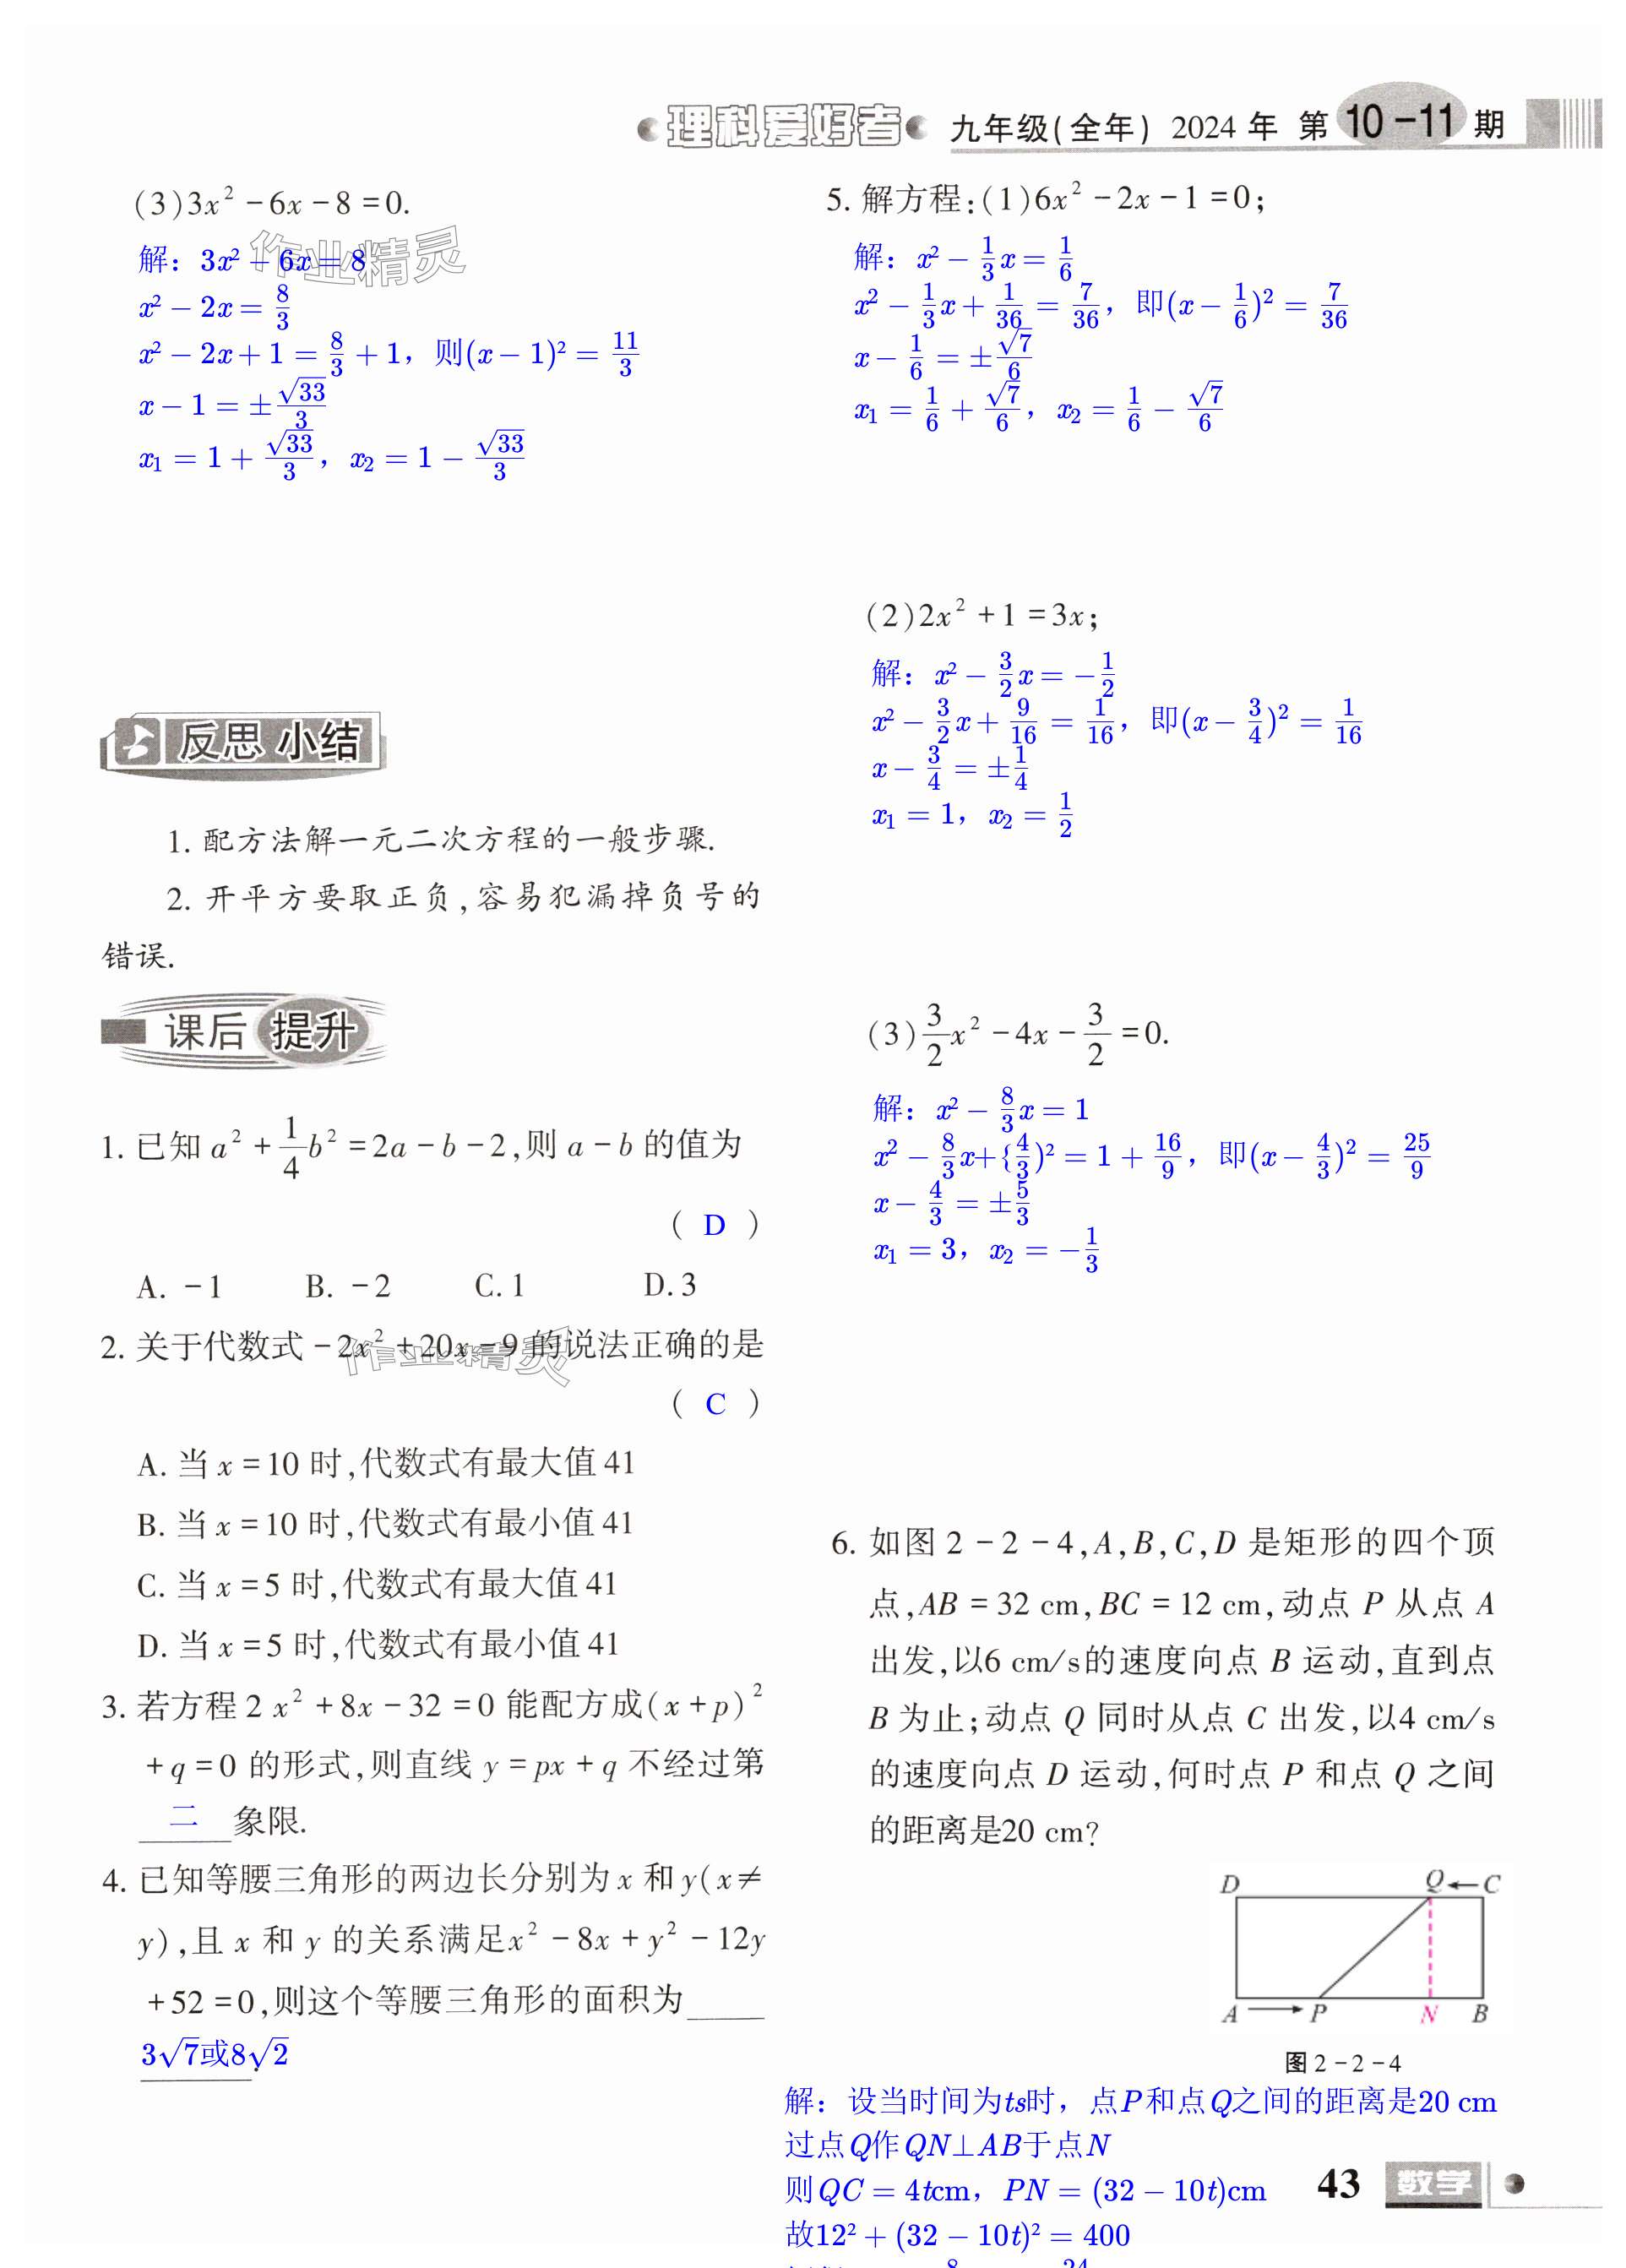 理科爱好者 九年级(全年) 2024 年 第 10-11 期
(3)3x² - 6x - 8 = 0.
解：3x² - 6x = 8
x² - 2x = 8/3
x² - 2x + 1 = 8/3 + 1，则(x - 1)² = 11/3
x - 1 = ±√33/3
x₁ = 1 + √33/3，x₂ = 1 - √33/3
作业精灵
反思 小结
1. 配方法解一元二次方程的一般步骤.
2. 开平方要取正负,容易犯漏掉负号的
错误.
课后 提升
1. 已知 a² + 1/4 b² = 2a - b - 2,则 a - b 的值为
( D )
A. -1 B. -2 C. 1 D. 3
2. 关于代数式 -2x² + 20x - 9 的说法正确的是
作业精灵
( C )
A. 当 x = 10 时,代数式有最大值 41
B. 当 x = 10 时,代数式有最小值 41
C. 当 x = 5 时,代数式有最大值 41
D. 当 x = 5 时,代数式有最小值 41
3. 若方程 2 x² + 8x - 32 = 0 能配方成(x + p)²
+ q = 0 的形式,则直线 y = px + q 不经过第
二 象限.
4. 已知等腰三角形的两边长分别为 x 和 y(x ≠
y),且 x 和 y 的关系满足x² - 8x + y² - 12y
+ 52 = 0,则这个等腰三角形的面积为
3√7或8√2 .
5. 解方程:(1)6x² - 2x - 1 = 0;
解：x² - 1/3 x = 1/6
x² - 1/3 x + 1/36 = 7/36，即(x - 1/6)² = 7/36
x - 1/6 = ±√7/6
x₁ = 1/6 + √7/6，x₂ = 1/6 - √7/6
(2)2x² + 1 = 3x;
解：x² - 3/2 x = -1/2
x² - 3/2 x + 9/16 = 1/16，即(x - 3/4)² = 1/16
x - 3/4 = ±1/4
x₁ = 1，x₂ = 1/2
(3) 3/2 x² - 4x - 3/2 = 0.
解：x² - 8/3 x = 1
x² - 8/3 x+{4/3)² = 1 + 16/9，即(x - 4/3)² = 25/9
x - 4/3 = ±5/3
x₁ = 3，x₂ = -1/3
6. 如图 2 - 2 - 4,A,B,C,D 是矩形的四个顶
点,AB = 32 cm,BC = 12 cm,动点 P 从点 A
出发,以6 cm/s的速度向点 B 运动,直到点
B 为止;动点 Q 同时从点 C 出发,以4 cm/s
的速度向点 D 运动,何时点 P 和点 Q 之间
的距离是20 cm?
D Q ← C
A → P N B
图 2 - 2 - 4
解：设当时间为ts时，点P和点Q之间的距离是20 cm
过点Q作QN⊥AB于点N
则QC = 4tcm，PN = (32 - 10t)cm
故12² + (32 - 10t)² = 400
43 数学